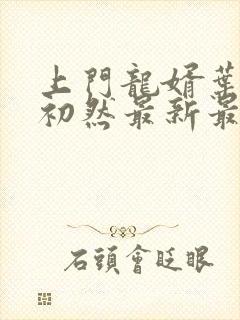 上門龍婿葉
初然最新最
石頭會眨眼